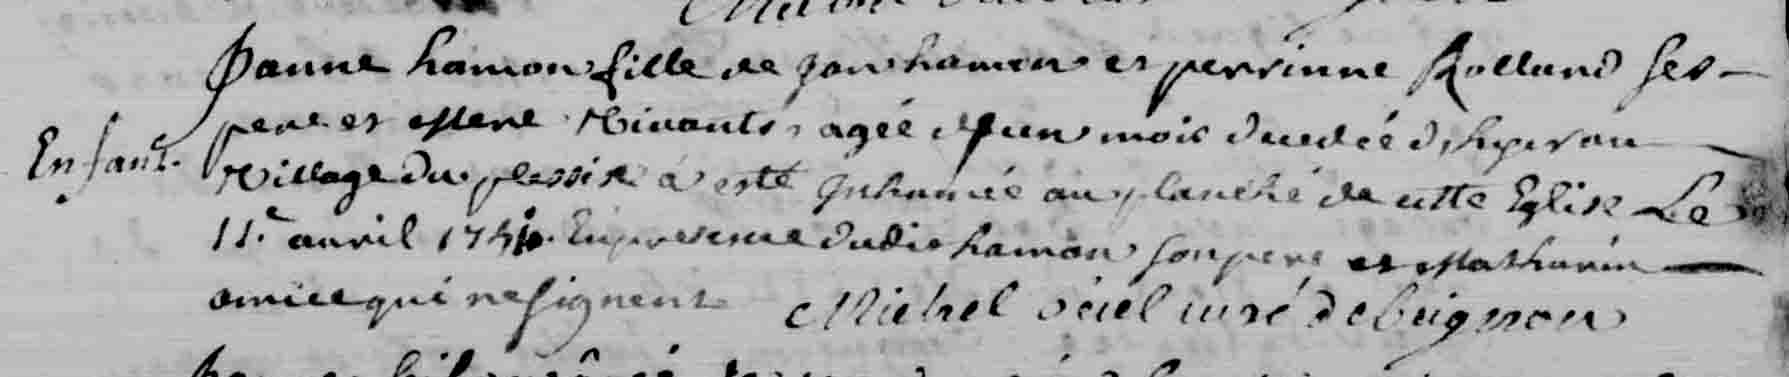 Janne hamon fille de jan hamon et perrinne Rolland ses
Enfant. pere et Mere Vivants, agée d'un mois décédée d'hyer au
Village du plessix a esté Inhumée au planché de cette Eglise Le
11.e auril En presence dudit hamon son pere et Mathurin
qui ne signent Michel curé de